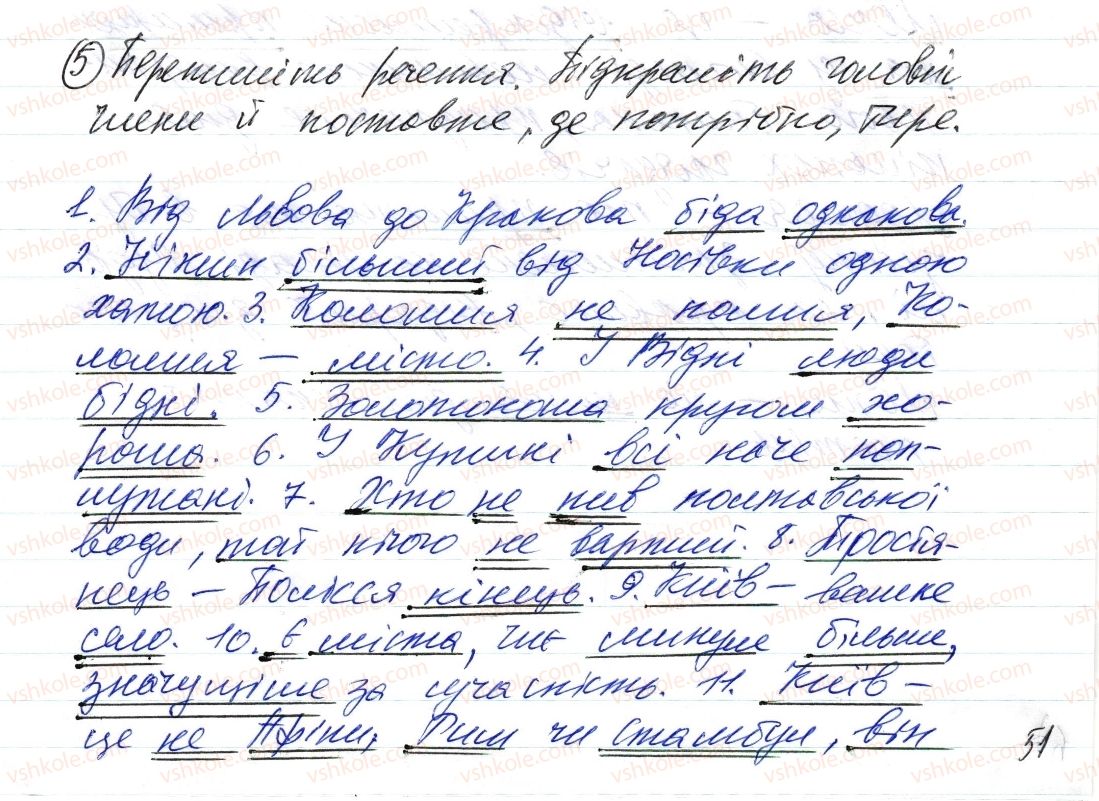 5 Перепишіть речення. Підкресліть головні
члени й поставте, де потрібно, тире.
1. Від Львова до Кракова біда однакова.
2. Ніжин більший від Носівки одною
хатою. 3. Коломия не помия, Ко-
ломия — місто. 4. У Відні люди
бідні. 5. Золотоноша кругом хо-
роша. 6. У Кутині всі наче поп-
мутані. 7. Хто не пив полтавської
води, той нічого не вартий. 8. Тростя-
нець — Полісся кінець. 9. Київ — велике
село. 10. Є міста, чиє минуле більше,
значущіше за сучасність. 11. Київ —
це не Афіни, Рим чи Стамбул, він
51